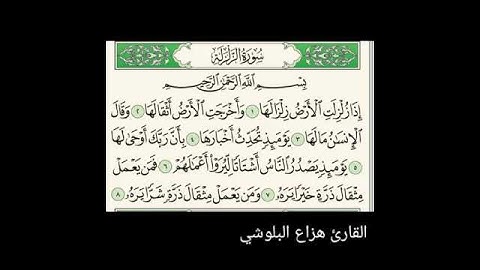 سُورَةُ الزَّلْزَلَةِ
بِسْمِ اللَّهِ الرَّحْمَٰنِ الرَّحِيمِ
إِذَا زُلْزِلَتِ الْأَرْضُ زِلْزَالَهَا ١ وَأَخْرَجَتِ الْأَرْضُ أَثْقَالَهَا ٢ وَقَالَ
الْإِنسَٰنُ مَا لَهَا ٣ يَوْمَئِذٍ تُحَدِّثُ أَخْبَارَهَا ٤ بِأَنَّ رَبَّكَ أَوْحَىٰ لَهَا
٥ يَوْمَئِذٍ يَصْدُرُ النَّاسُ أَشْتَاتًا لِّيُرَوْا أَعْمَٰلَهُمْ ٦ فَمَن يَعْمَلْ
مِثْقَالَ ذَرَّةٍ خَيْرًا يَرَهُۥ ٧ وَمَن يَعْمَلْ مِثْقَالَ ذَرَّةٍ شَرًّا يَرَهُۥ ٨
القارئ هزاع البلوشي